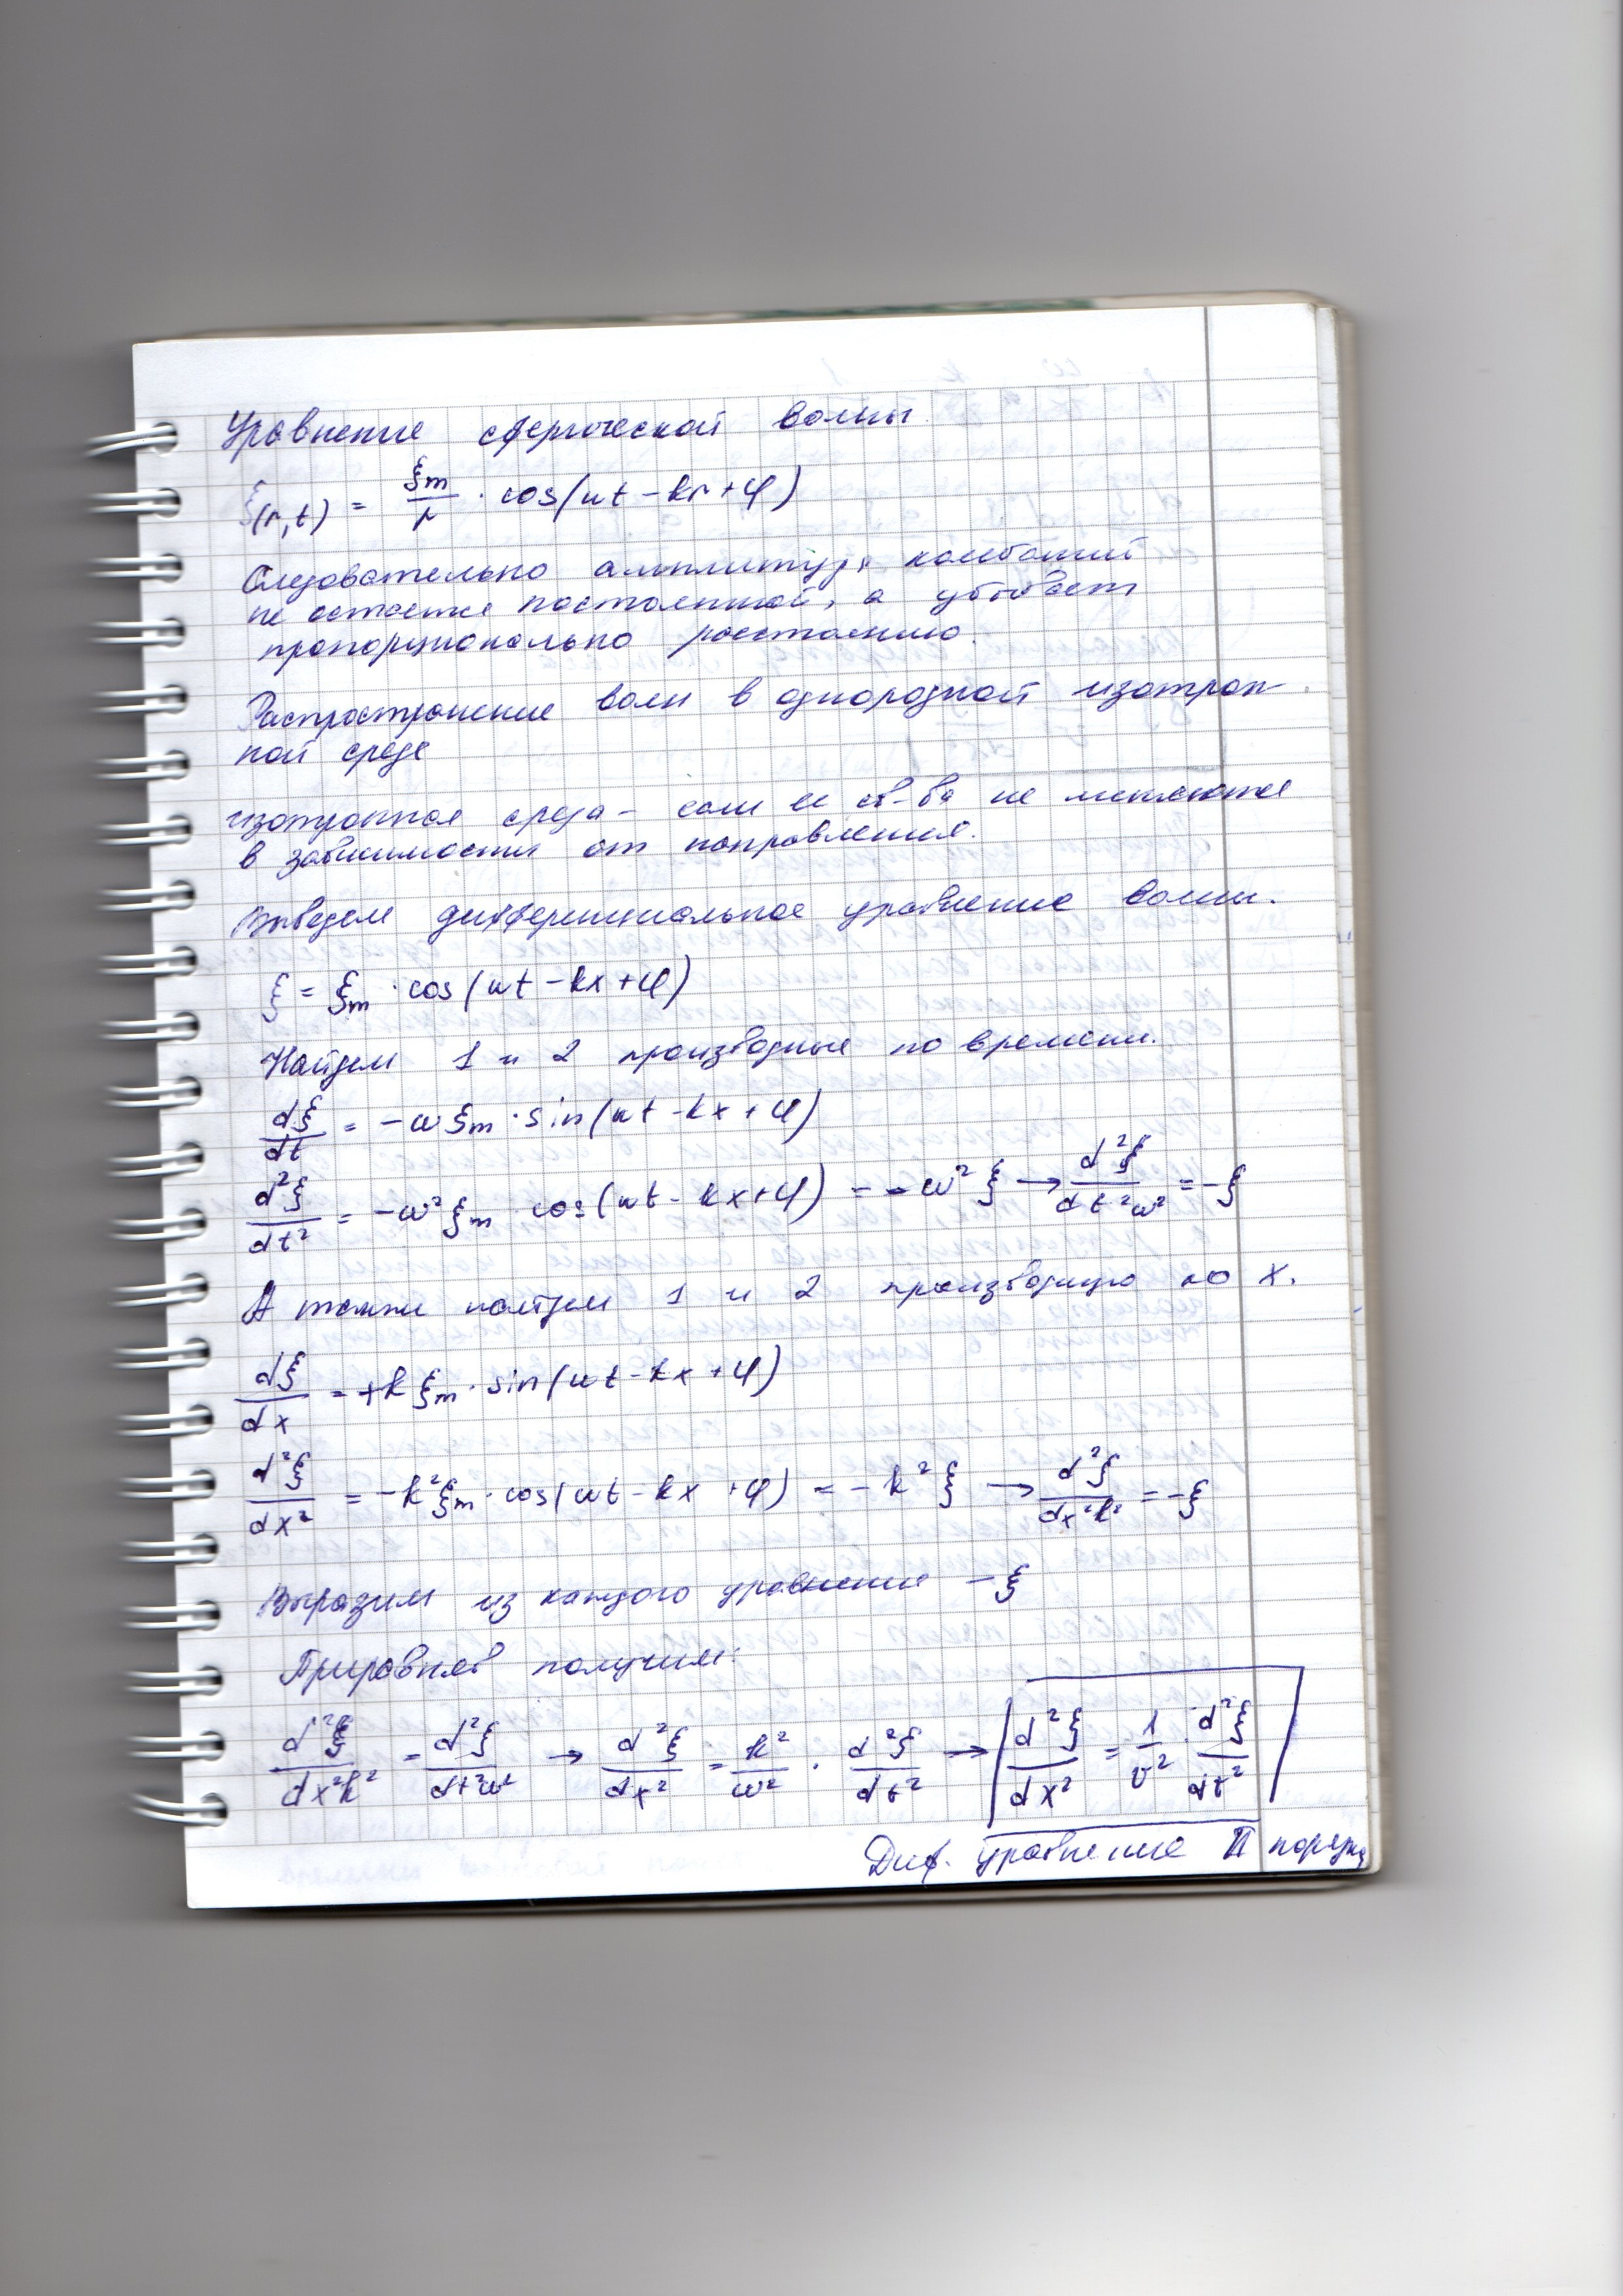 Уравнение сферической волны
ξ(r,t) = ξm/r · cos(ωt – kr + φ)
Следовательно амплитуда колебаний
не остается постоянной, а убывает
пропорционально расстоянию.
Распространение волн в однородной изотроп-
ной среде
изотропная среда – если ее св-ва не меняются
в зависимости от направления.
Выведем дифференциальное уравнение волны.
ξ = ξm · cos(ωt – kx + φ)
Найдем 1 и 2 производные по времени.
dξ/dt = –ωξm · sin(ωt – kx + φ)
d²ξ/dt² = –ω²ξm cos(ωt – kx + φ) = –ω²ξ → d²ξ/dt²ω² = –ξ
А также найдем 1 и 2 производную по x.
dξ/dx = +kξm · sin(ωt – kx + φ)
d²ξ/dx² = –k²ξm · cos(ωt – kx + φ) = –k²ξ → d²ξ/dx²k² = –ξ
Выразим из каждого уравнения –ξ
Приравняв получим:
d²ξ/dx²k² = d²ξ/dt²ω² → d²ξ/dx² = k²/ω² · d²ξ/dt² → d²ξ/dx² = 1/v² · d²ξ/dt²
Диф. уравнение II порядка